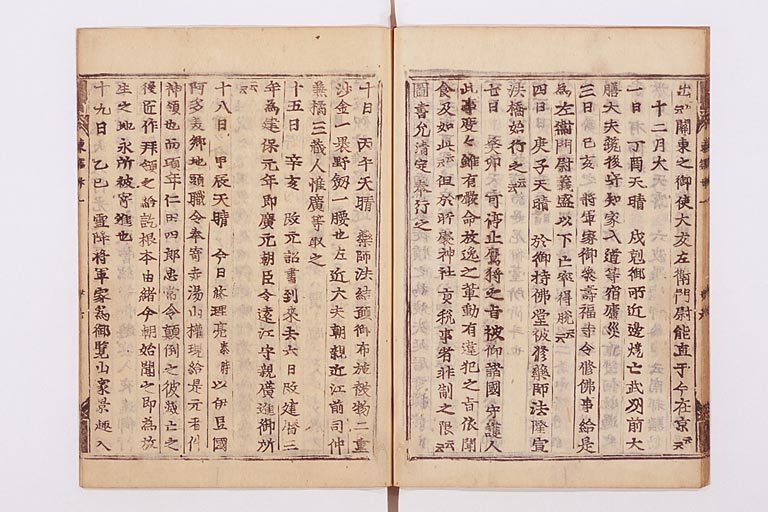 出云々關東之御使大友左衛門尉能直于今在京云々
十二月大
一日丁酉天晴 戌剋御所近邊燒亡武州前大
膳大夫 後守知家入道等宿廬災
三日己亥 將軍家御參壽福寺令修佛事給是
為左衛門尉義盛以下亡卒得脱云々
四日庚子天晴 於御持佛堂被修藥師法隆宣
法橋始行之云々
七日癸卯天 可停止鷹狩之旨被仰諸國守護人
此事度々雖有嚴命放逸之輩動有違犯之旨依聞
食及如此云々但於所處神社貢税事者非制之限云々
圖書允清定奉行之
十日 丙午天晴 藥師法結願御布施被物二重
沙金一裹野劔一腰也左近大夫朝親近江前司仲
業橘三藏人惟廣等取之
十五日 辛亥 改元詔書到來去六日改建暦三
年為建保元年即廣元朝臣令遠江守親廣進御所
云々
十八日 甲辰天晴 今日修理亮泰時以伊豆國
阿多美郷地頭職令奉寄走湯山權現給是元者件
神領也而項年仁田四郎忠常令顛倒之彼滅亡之
後匠作拜領之給説根本由緒今朝始聞之即為放
生之地永所被寄進也
十九日 乙巳 雪降將軍家為御覽山家景趣入